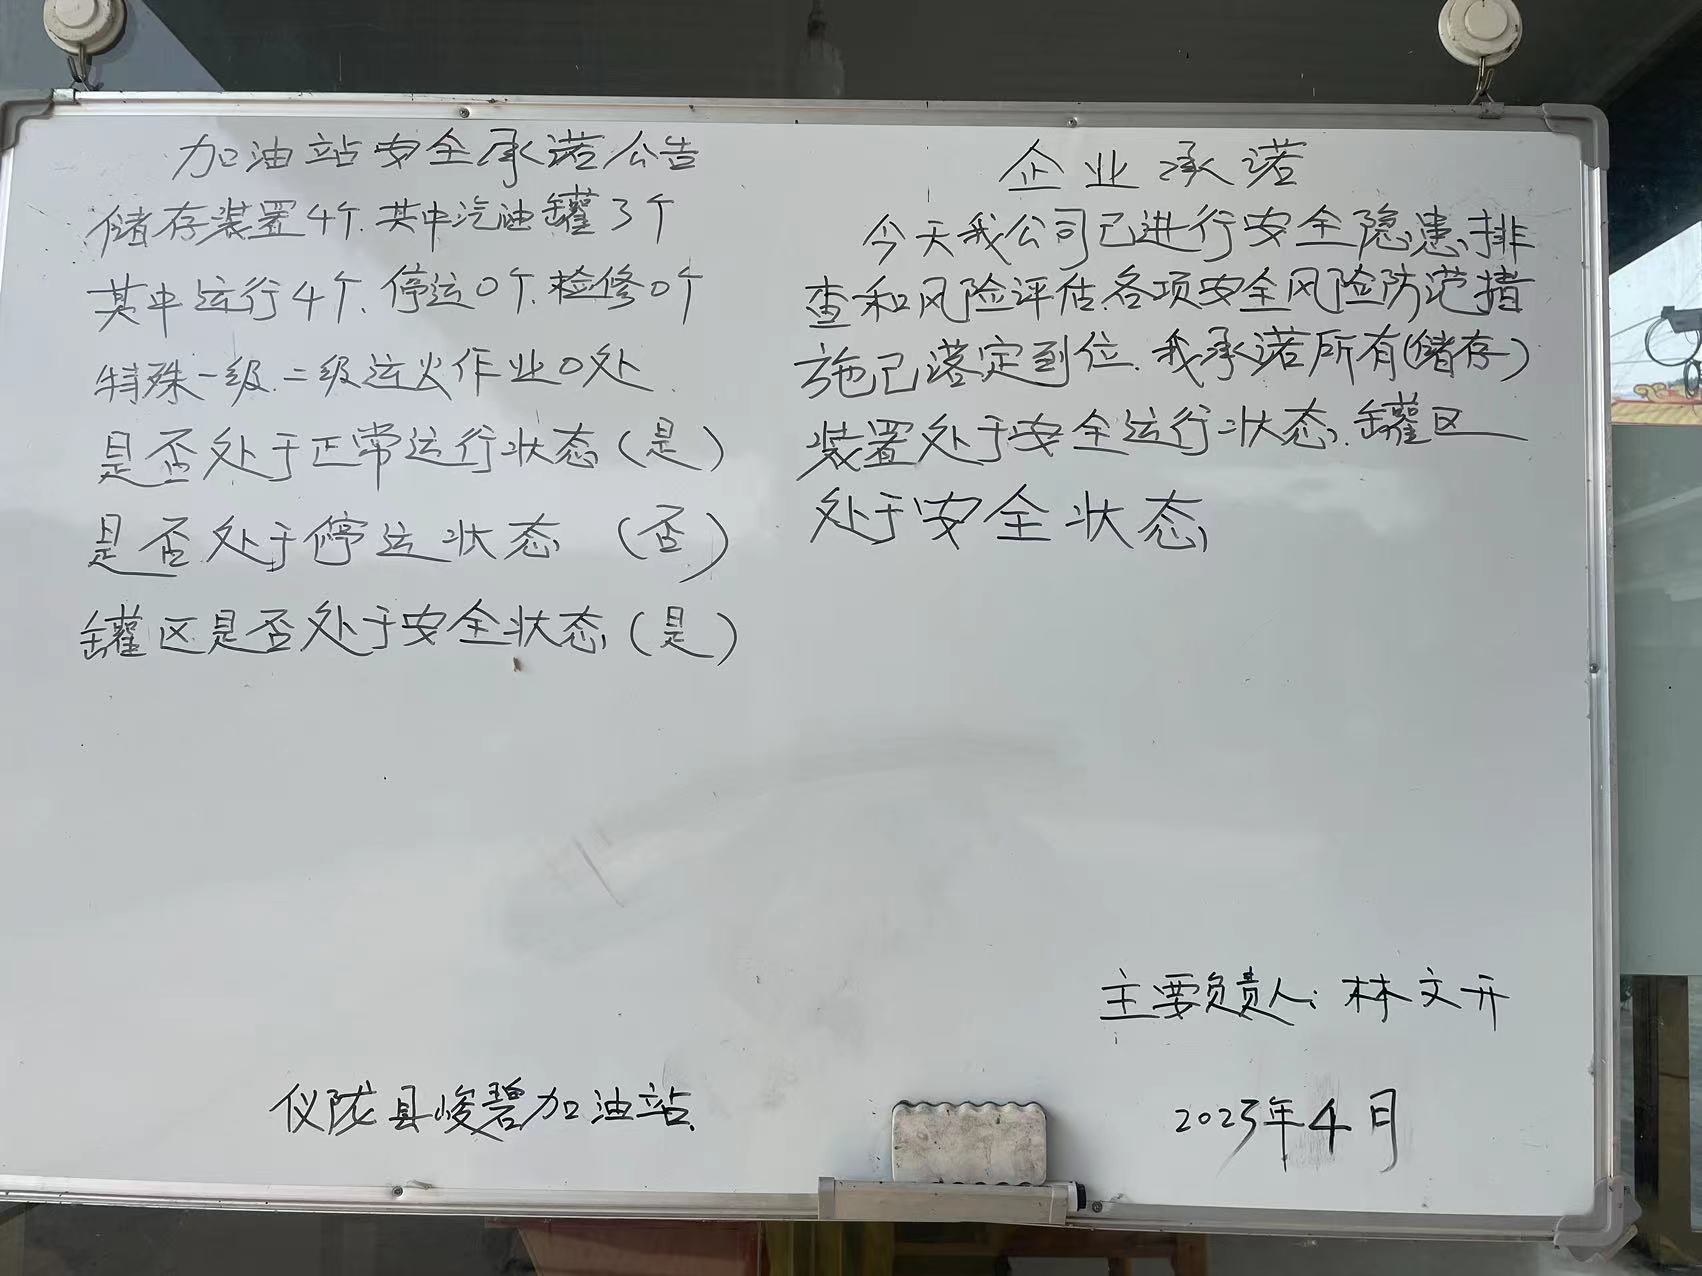 加油站安全承诺公告
储存装置4个.其中汽油罐3个
其中运行4个.停运0个.检修0个
特殊一级.二级运火作业0处
是否处于正常运行状态(是)
是否处于停运状态(否)
罐区是否处于安全状态(是)
仪陇县峻碧加油站
企业承诺
今天我公司已进行安全隐患排
查和风险评估.各项安全风险防范措
施已落定到位.我承诺所有(储存)
装置处于安全运行状态.罐区
处于安全状态
主要负责人:林文开
2023年4月